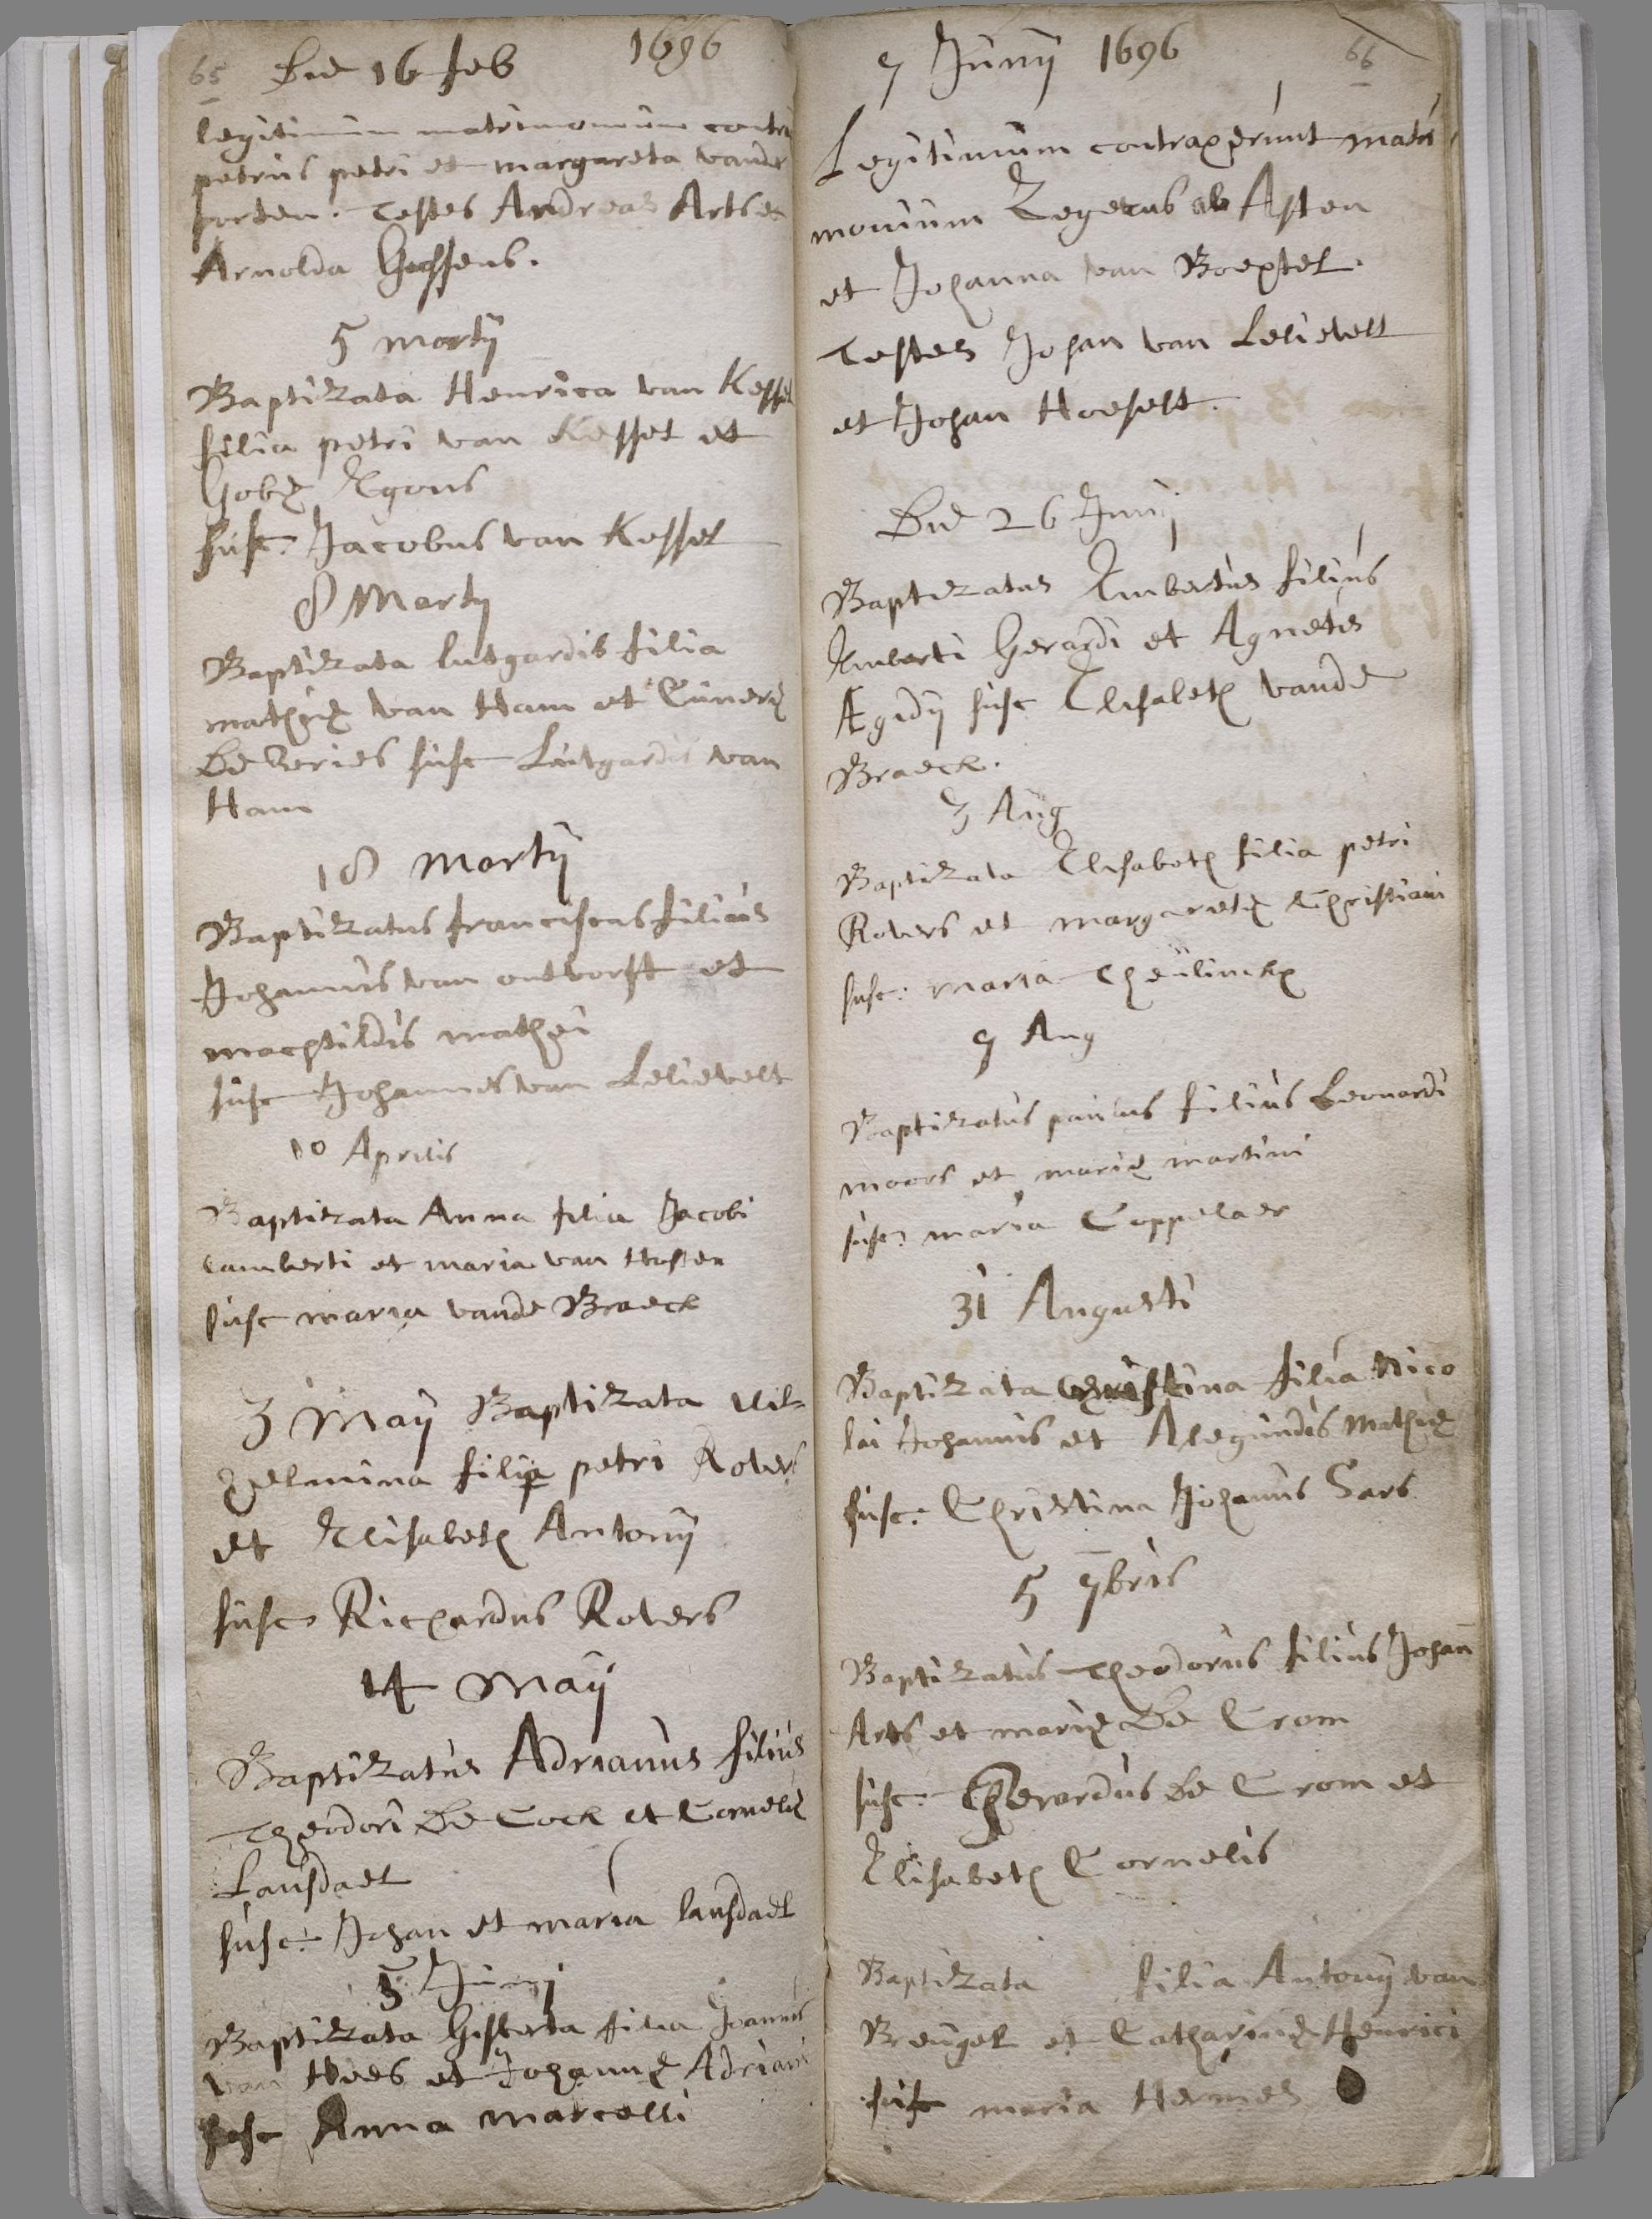 65 Die 16 feb 1696
legitimum matrimonium contra
petrus petri et margareta vander
porten. Testes Andreas Arts et
Arnolda Gossens.
5 martij
Baptizata Henrica van Kessel
filia petri van Kessel et
Gobæ Agons
susc: Jacobus van Kessel
8 Martij
Baptizata lutgardis filia
mathiæ van Ham et Cuneræ
De Veries susc Lutgardis van
Ham
18 martij
Baptizatus franciscus filius
Johannis van ontvorst et
machtildis mathei
susc Johannes van Lelievelt
10 Aprilis
Baptizata Anna filia Jacobi
Lamberti et maria van
susc maria vande Braeck
3 Maij Baptizata Uil=
helmina filia petri Rovers
et Elisabeth Antonij
susc Richardus Rovers
14 Maij
Baptizatus Adrianus filius
Theodori De Cock et Corneliæ
Lansdael
susc: Johan et maria lansdael
5 Junij
Baptizata Gisberta filia Joannis
van Hees et Johannæ Adriani
susc Anna marcelli
7 Junij 1696 66
Legitimum contraxerunt matri
monium Rogerus ab Asten
et Johanna van Boextel.
Testes Johan van Lelievelt
et Johan Hoeselt.
Die 26 Junij
Baptizatus Embertus filius
Emberti Gerardi et Agnetis
Ægidij susc Elisabeth vande
Braeck.
3 Aug
Baptizata Elisabeth filia petri
Rovers et margaretæ Christiani
susc: maria Theulinckx
9 Aug
Baptizatus paulus filius Leonardi
moors et mariæ martini
susc: maria Coppelaer
31 Augusti
Baptizata Christina filia Nico
lai Johannis et Alegundis Mathiæ
susc: Christina Johannis Sars
5 7bris
Baptizatus Theodorus filius Johan
Arts et mariæ De Crom
susc: Gerardus De Crom et
Elisabeth Cornelis
Baptizata filia Antonij van
Breugel et Catharinæ Henrici
susc maria Hermes